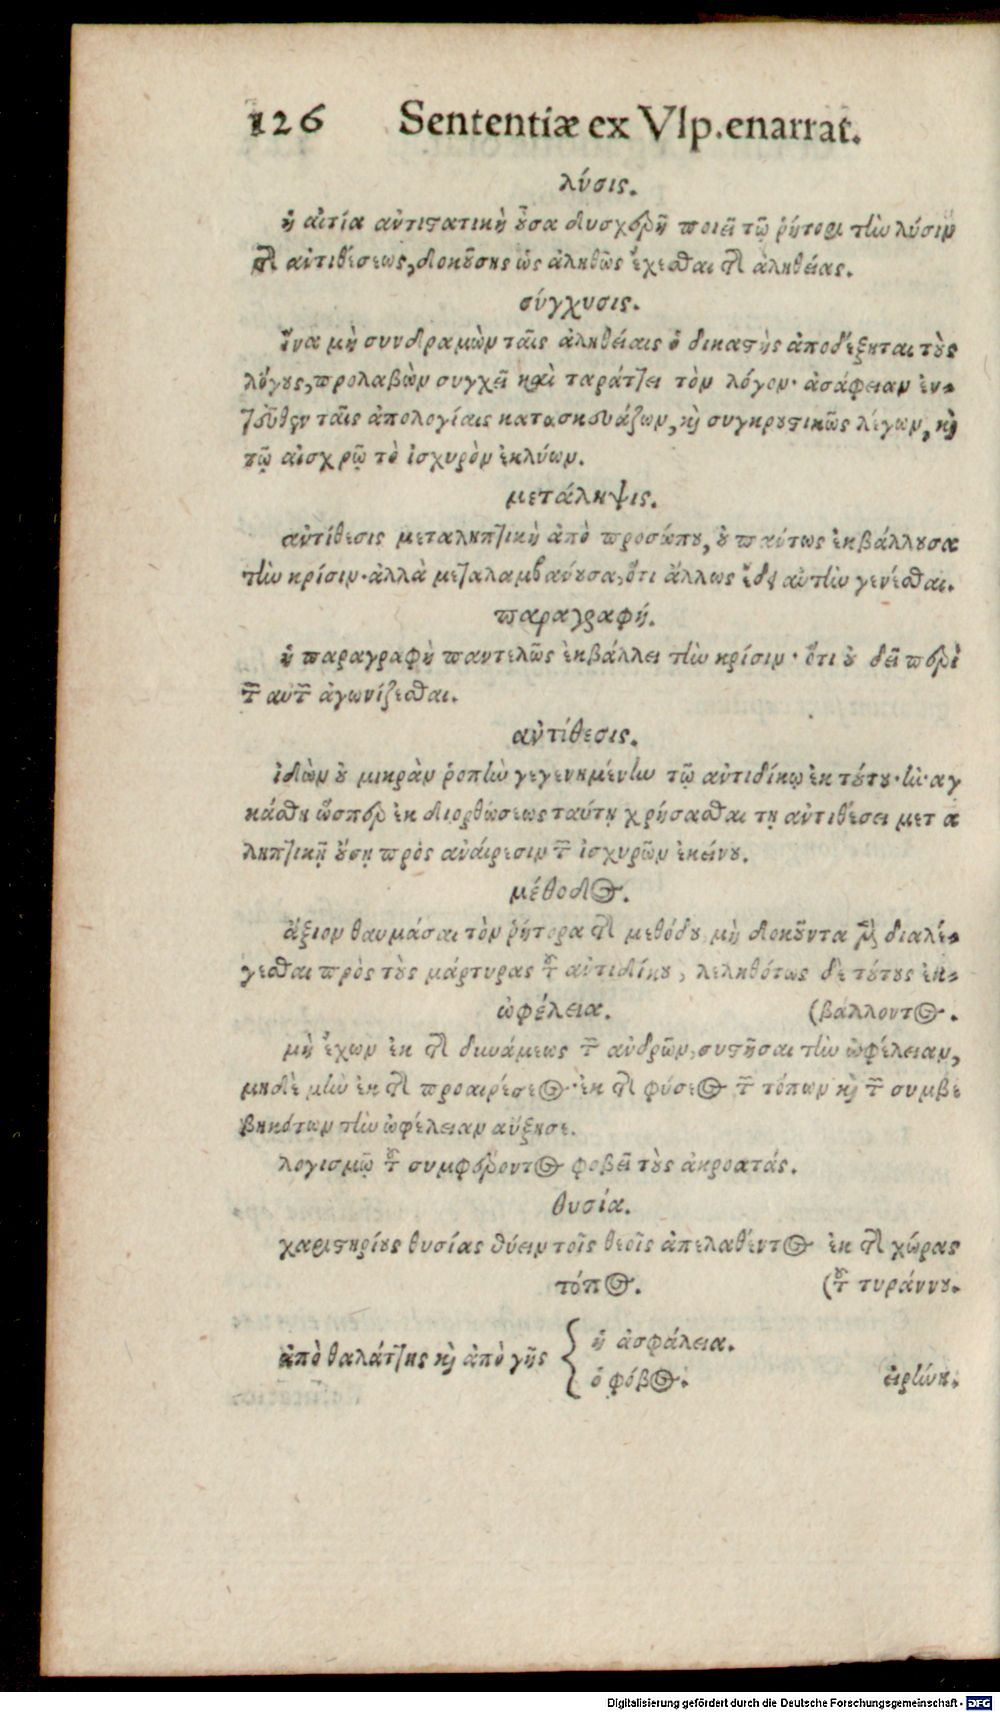 126 Sententiæ ex Vlp.enarrat.
λύσις.
ἡ αἰτία ἀντιστατικὴ οὖσα δυσχερῆ ποιεῖ τῷ ῥήτορι τὴν λύσιν
τῆς ἀντιθέσεως, δοκούσης ὡς ἀληθῶς ἔχεσθαι τῆς ἀληθείας.
σύγχυσις.
ἵνα μὴ συνδραμὼν ταῖς ἀληθείαις ὁ δικαστὴς ἀποδέξηται τοὺς
λόγους, προλαβὼν συγχεῖ καὶ ταράττει τὸν λόγον· ἀσάφειαν ἐν-
τεῦθεν ταῖς ἀπολογίαις κατασκευάζων, καὶ συγκρουστικῶς λέγων, καὶ
τῷ αἰσχρῷ τὸ ἰσχυρὸν ἐκλύων.
μετάληψις.
ἀντίθεσις μεταληπτικὴ ἀπὸ προσώπου, οὐ πάντως ἐκβάλλουσα
τὴν κρίσιν· ἀλλὰ μεταλαμβάνουσα, ὅτι ἄλλως ἔδει αὐτὴν γενέσθαι.
παραγραφή.
ἡ παραγραφὴ παντελῶς ἐκβάλλει τὴν κρίσιν· ὅτι οὐ δεῖ περὶ
τῶν αὐτῶν ἀγωνίζεσθαι.
ἀντίθεσις.
ἰδὼν οὐ μικρὰν ῥοπὴν γεγενημένην τῷ ἀντιδίκῳ ἐκ τούτου· ἠναγ
κάσθη ὥσπερ ἐκ διορθώσεως ταύτῃ χρήσασθαι τῇ ἀντιθέσει μετα
ληπτικῇ οὔσῃ πρὸς ἀναίρεσιν τῶν ἰσχυρῶν ἐκείνου.
μέθοδος.
ἄξιον θαυμάσαι τὸν ῥήτορα τῆς μεθόδου μὴ δοκοῦντα μὲν διαλέ-
γεσθαι πρὸς τοὺς μάρτυρας τοῦ ἀντιδίκου, λεληθότως δὲ τούτους ἐκ-
ὠφέλεια. (βάλλοντος.
μὴ ἔχων ἐκ τῆς δυνάμεως τῶν ἀνδρῶν, συστῆσαι τὴν ὠφέλειαν,
μηδὲ μὴν ἐκ τῆς προαιρέσεος· ἐκ τῆς φύσεος τῶν τόπων καὶ τῶν συμβε
βηκότων τὴν ὠφέλειαν αὔξησε.
λογισμῷ τοῦ συμφέροντος φοβεῖ τοὺς ἀκροατάς.
θυσία.
χαριστηρίους θυσίας θύειν τοῖς θεοῖς ἀπελαθέντος ἐκ τῆς χώρας
τόπος. (τοῦ τυράννου.
ἀπὸ θαλάττης καὶ ἀπὸ γῆς { ἡ ἀσφάλεια.
ὁ φόβος. εἰρήνη.
Digitalisierung gefördert durch die Deutsche Forschungsgemeinschaft - DFG